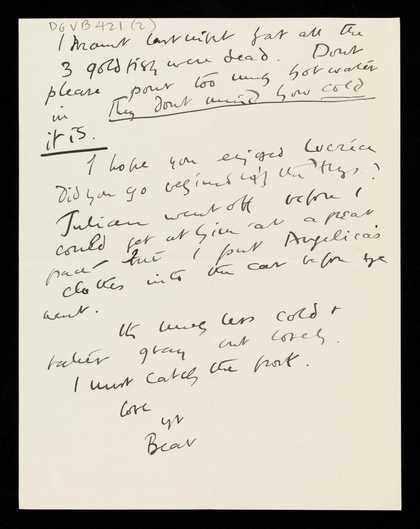 DGVB 421 (2)
I dreamt last night that all the
3 goldfish were dead. Dont
please pour too much hot water
in They dont mind how cold
it is.
I hope you enjoyed Lucrece
Did you go behind with the
Julian went off before I
could get at him at a great
pace but I put Angelica's
clothes into the car before he
went.
Its much less cold &
rather gray but lovely.
I must catch the post.
love
yr
Bear